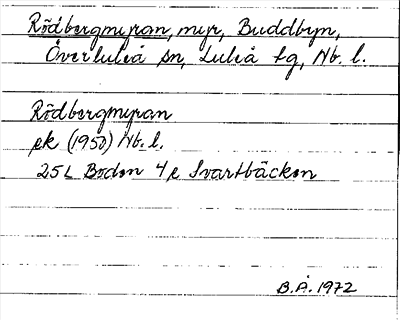 Rödbergmyran, myr, Buddbyn,
Överluleå sn, Luleå tg, Nb. l.
Rödbergmyran
ek (1950) Nb. l.
25L Boden 4e Svartbäcken
B.Å. 1972